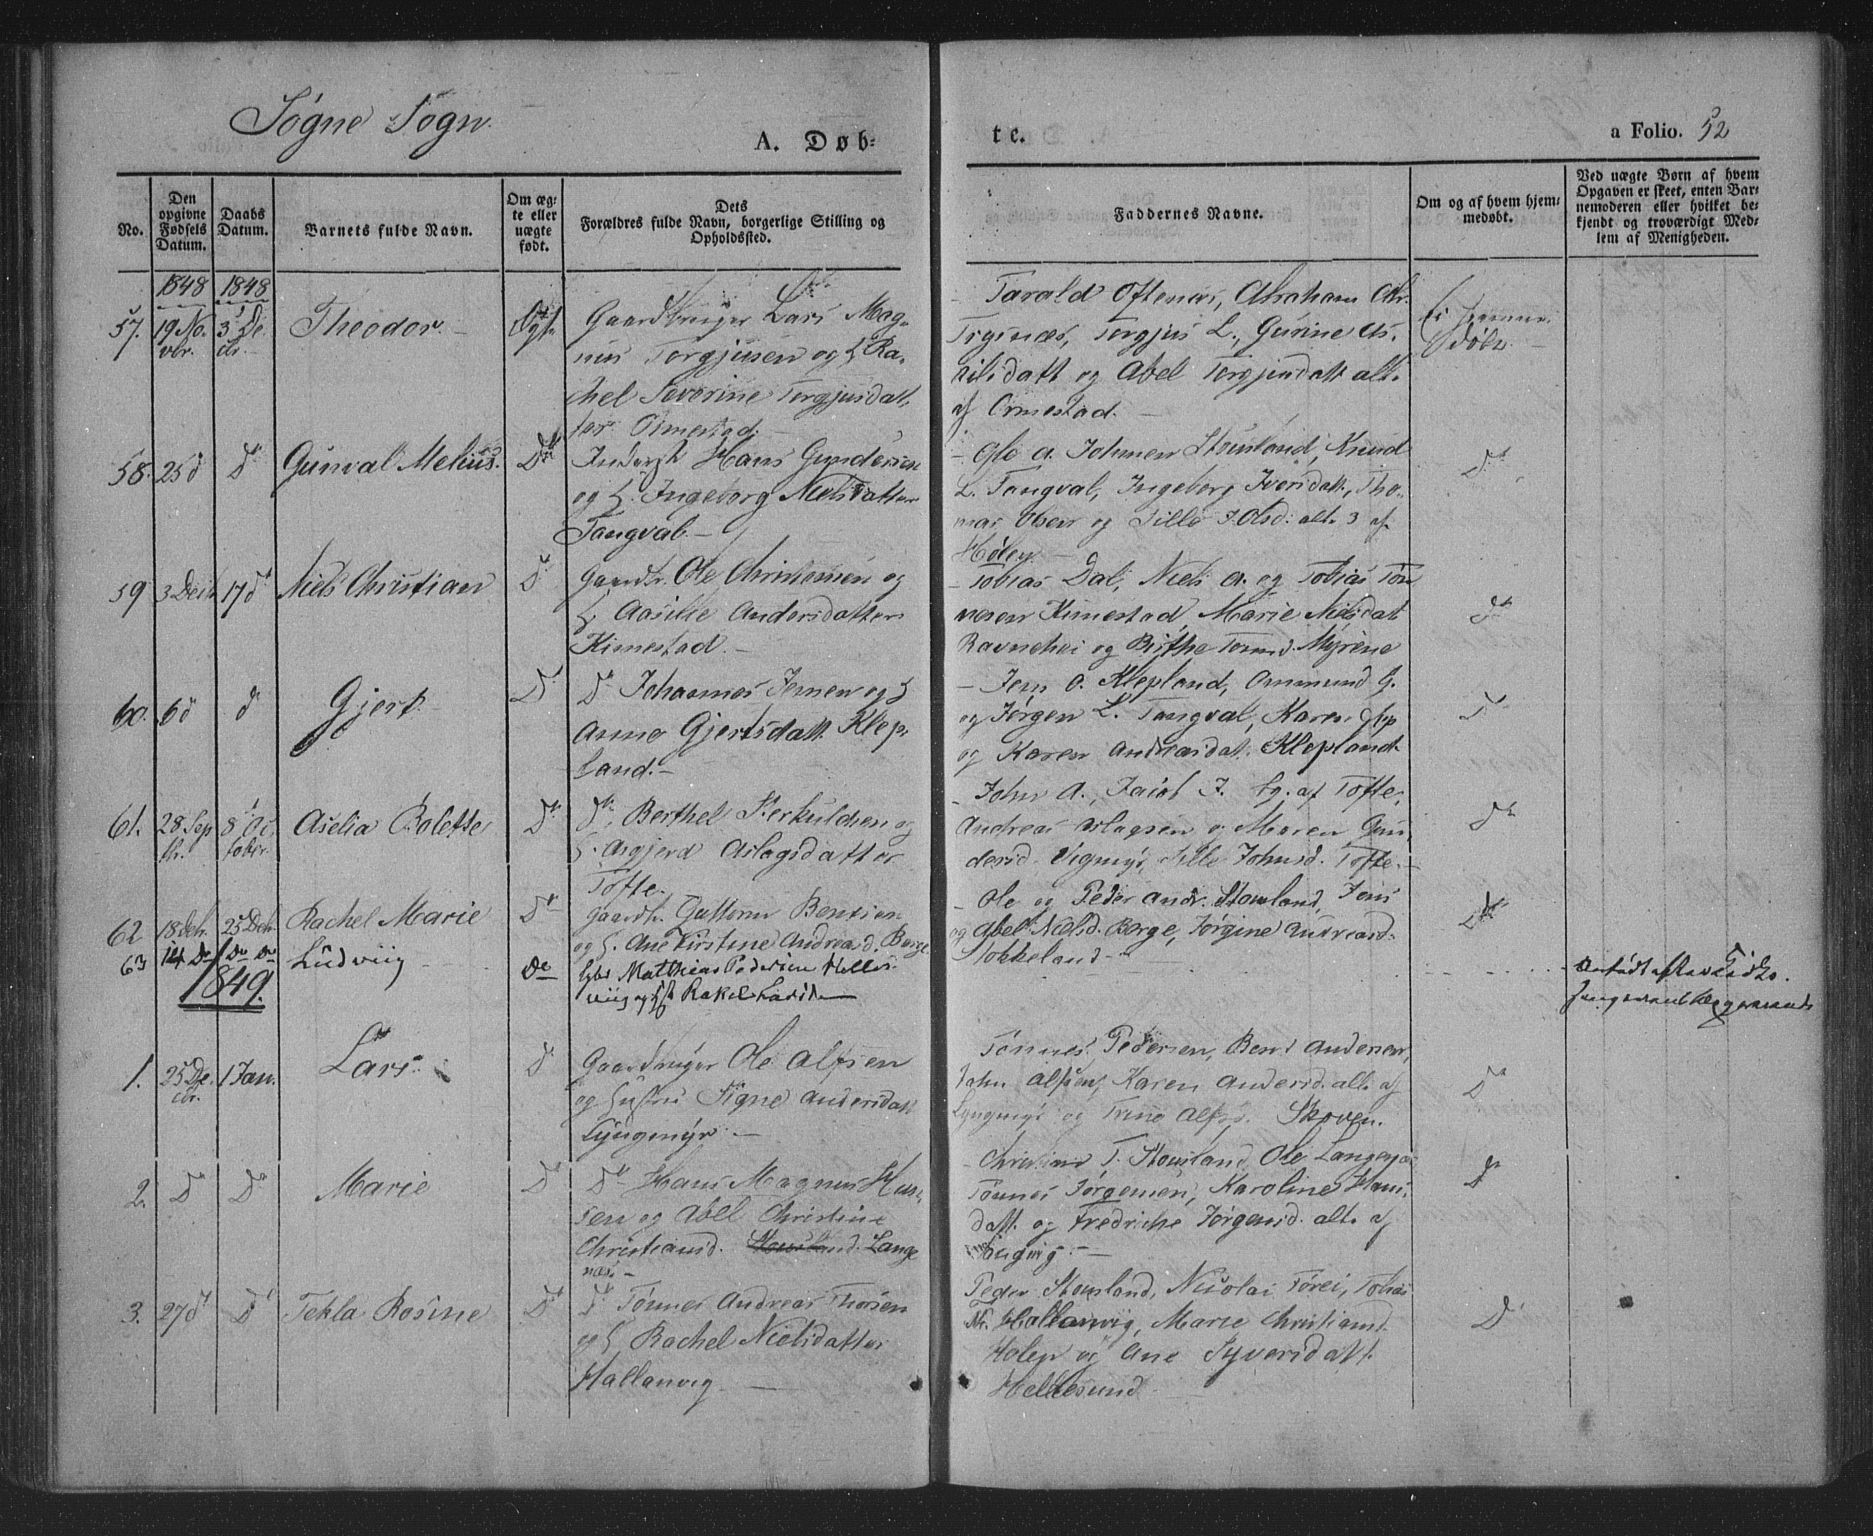 Søgne Sogn
A. Døb-
te.
a Folio. 52
No.
Den opgivne Fødsels Datum.
Daabs Datum.
Barnets fulde Navn.
Om æg-
te eller
uægte
født.
Dets
Forældres fulde Navn, borgerlige Stilling og
Opholdssted.
Faddernes Navne.
Om og af hvem hjem-
medøbt.
Ved uægte Børn af hvem
Opgaven er skeet, enten Bar-
nemoderen eller hvilket be-
kjendt og troværdigt Med-
lem af Menigheden.
1848 1848
57. 19 No- 3 De-
vbr. cbr.
Theodor
Ægte
Gaardbruger Lars Mag-
nus Torgjusen og H. Ra-
chel Severine Torgjusdat-
ter Ormestad.
Tarald Oftenæs, Abraham
Trysnæs, Torgjus L., Gurine As-
kilsdatt og Abel Torgjusdatt alle
af Ormestad.
58. 25 d D
Gunval Melius.
D
Hans Gundersen
og H. Ingeborg Nielsdatter
Tangval.
Ole A. Johnsen Stousland, Knud
L. Tangval, Ingeborg Iversdatt., Tho-
mas Olsen og Sille Olsd: alle 3 af
Høley
59 3 Decbr 17 d
Niels Christian
D
Gaardbr. Ole Christensen og
H. Aasille Andersdatter
Kimestad.
Tobias Dal, Niels A. og Tobias Tøn-
nesen Kimestad, Marie Nilsdat
Ravnehei og Birthe Torsd. Myrene
d
60. 6 d d
Gjert
D
D Johannes Jensen og H
Anne Gjertsdatt Klep-
land.
Jens O. Klepland, Ommund G.
og Jørgen L. Tangval, Karen
og Karen Andreasdat. Klepland
61. 28 Sep- 8 Oc-
tbr. tober
Aselia Bolette
D
D Berthel Terkuldsen og
H. Asgjerd Aslagsdatter
Tofte.
John A., J. af Tofte,
Andreas Aslagsen og Maren Gun-
dersd. Sille Johnsd. Tofte.
D
62 18 Decbr. 25 Decbr
Rachel Marie
D
Gaardbr. Guttorm Bentsen
og H. Ane Kirstine Andreasd. Berge
Ole og Peder Andr. Stousland, Jens
og Abel Nielsd. Berge, Jørgine Andreasd.
Stokkeland
63 14 D D D
Ludvig
D
Mathias Pedersen Helle-
viig og H. Rakel
1849.
1. 25 De- 1 Jan.
cbr.
Lars
d
Gaardbruger Ole Alfsen
og Hustru Signe Andersdatt
Lyngmyr
Tønnes Pedersen, Bent Andersen,
John Alfsen, Karen Andersd. alle af
Lyngmyr og Trine Alfsd. Skoven.
D
2. D D
Marie
D
D Hans Magnus Han-
sen og Abel Christine
Christiansd. Stousland. Lange-
næs
Christian T. Stousland, Ole Langenæs
Tønnes Jørgensen, Karoline Hans-
datt. og Fredrikke Jørgensd. alle af
D
3. 27 d D
Tekla Rosine
D
D Tønnes Andreas Thorsen
og H. Rachel Nielsdatter
Hallanvig
Peder Stousland, Nicolai Torei, Tobias
N. Hallanvig, Marie Christiansd.
Høley og Ane Syversdatt.
Hellesund
D